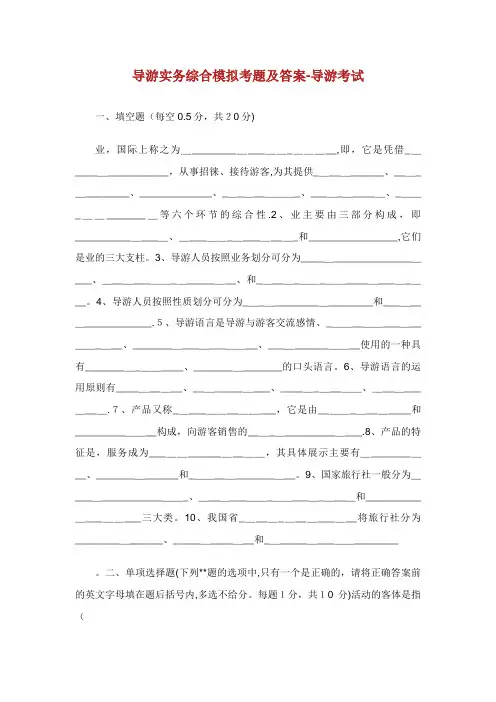 导游实务综合模拟考题及答案-导游考试
一、填空题（每空0.5分，共２0分)
业，国际上称之为__ ________ ___ ___ _ _____,即，它是凭借_ __
_____ _____________，从事招徕、接待游客,为其提供____ __ _ ______、___ __
_ ________、_____________、__ __ __ ______、____ __ ______、__ ___
_ ___ _______ __等六个环节的综合性.2、业主要由三部分构成，即
______________ ___、__ ___ __ _ ___ _______和________________,它们
是业的三大支柱。3、导游人员按照业务划分可分为______ ___ ____________
___、_____ ___ _ ___________、和____ ___ _ _____________ ___ _
__。4、导游人员按照性质划分可分为____ ___ _____ ___________和____ ___
_ ____________.５、导游语言是导游与游客交流感情、______ ___ ______ ___
____ _ __、_______ ___ ___________、____ _____ _____使用的一种具
有_______ _ __ _____、_______ ________的口头语言。6、导游语言的运
用原则有_____ ___ ___、___ ___ _______、______ ___ _____、_______
___ __.７、产品又称__ ___ ____ ____ ___，它是由___ ___ _ ___ _____和
____________ __构成，向游客销售的____ ___ _ ___________.8、产品的特
征是，服务成为___ ___ ____________，其具体展示主要有______ ____
__、________ ______和_____ ___ __________。9、国家旅行社一般分为__
____ ______________、___ __ ___ ___ _____________和__________
__ _______ ___三大类。10、我国省__ ___ ___ ___ _______将旅行社分为
_____________ __、_____ ____ __和__ _____ _____ ___________
。二、单项选择题(下列**题的选项中,只有一个是正确的，请将正确答案前
的英文字母填在题后括号内,多选不给分。每题１分，共１0 分)活动的客体是指
（